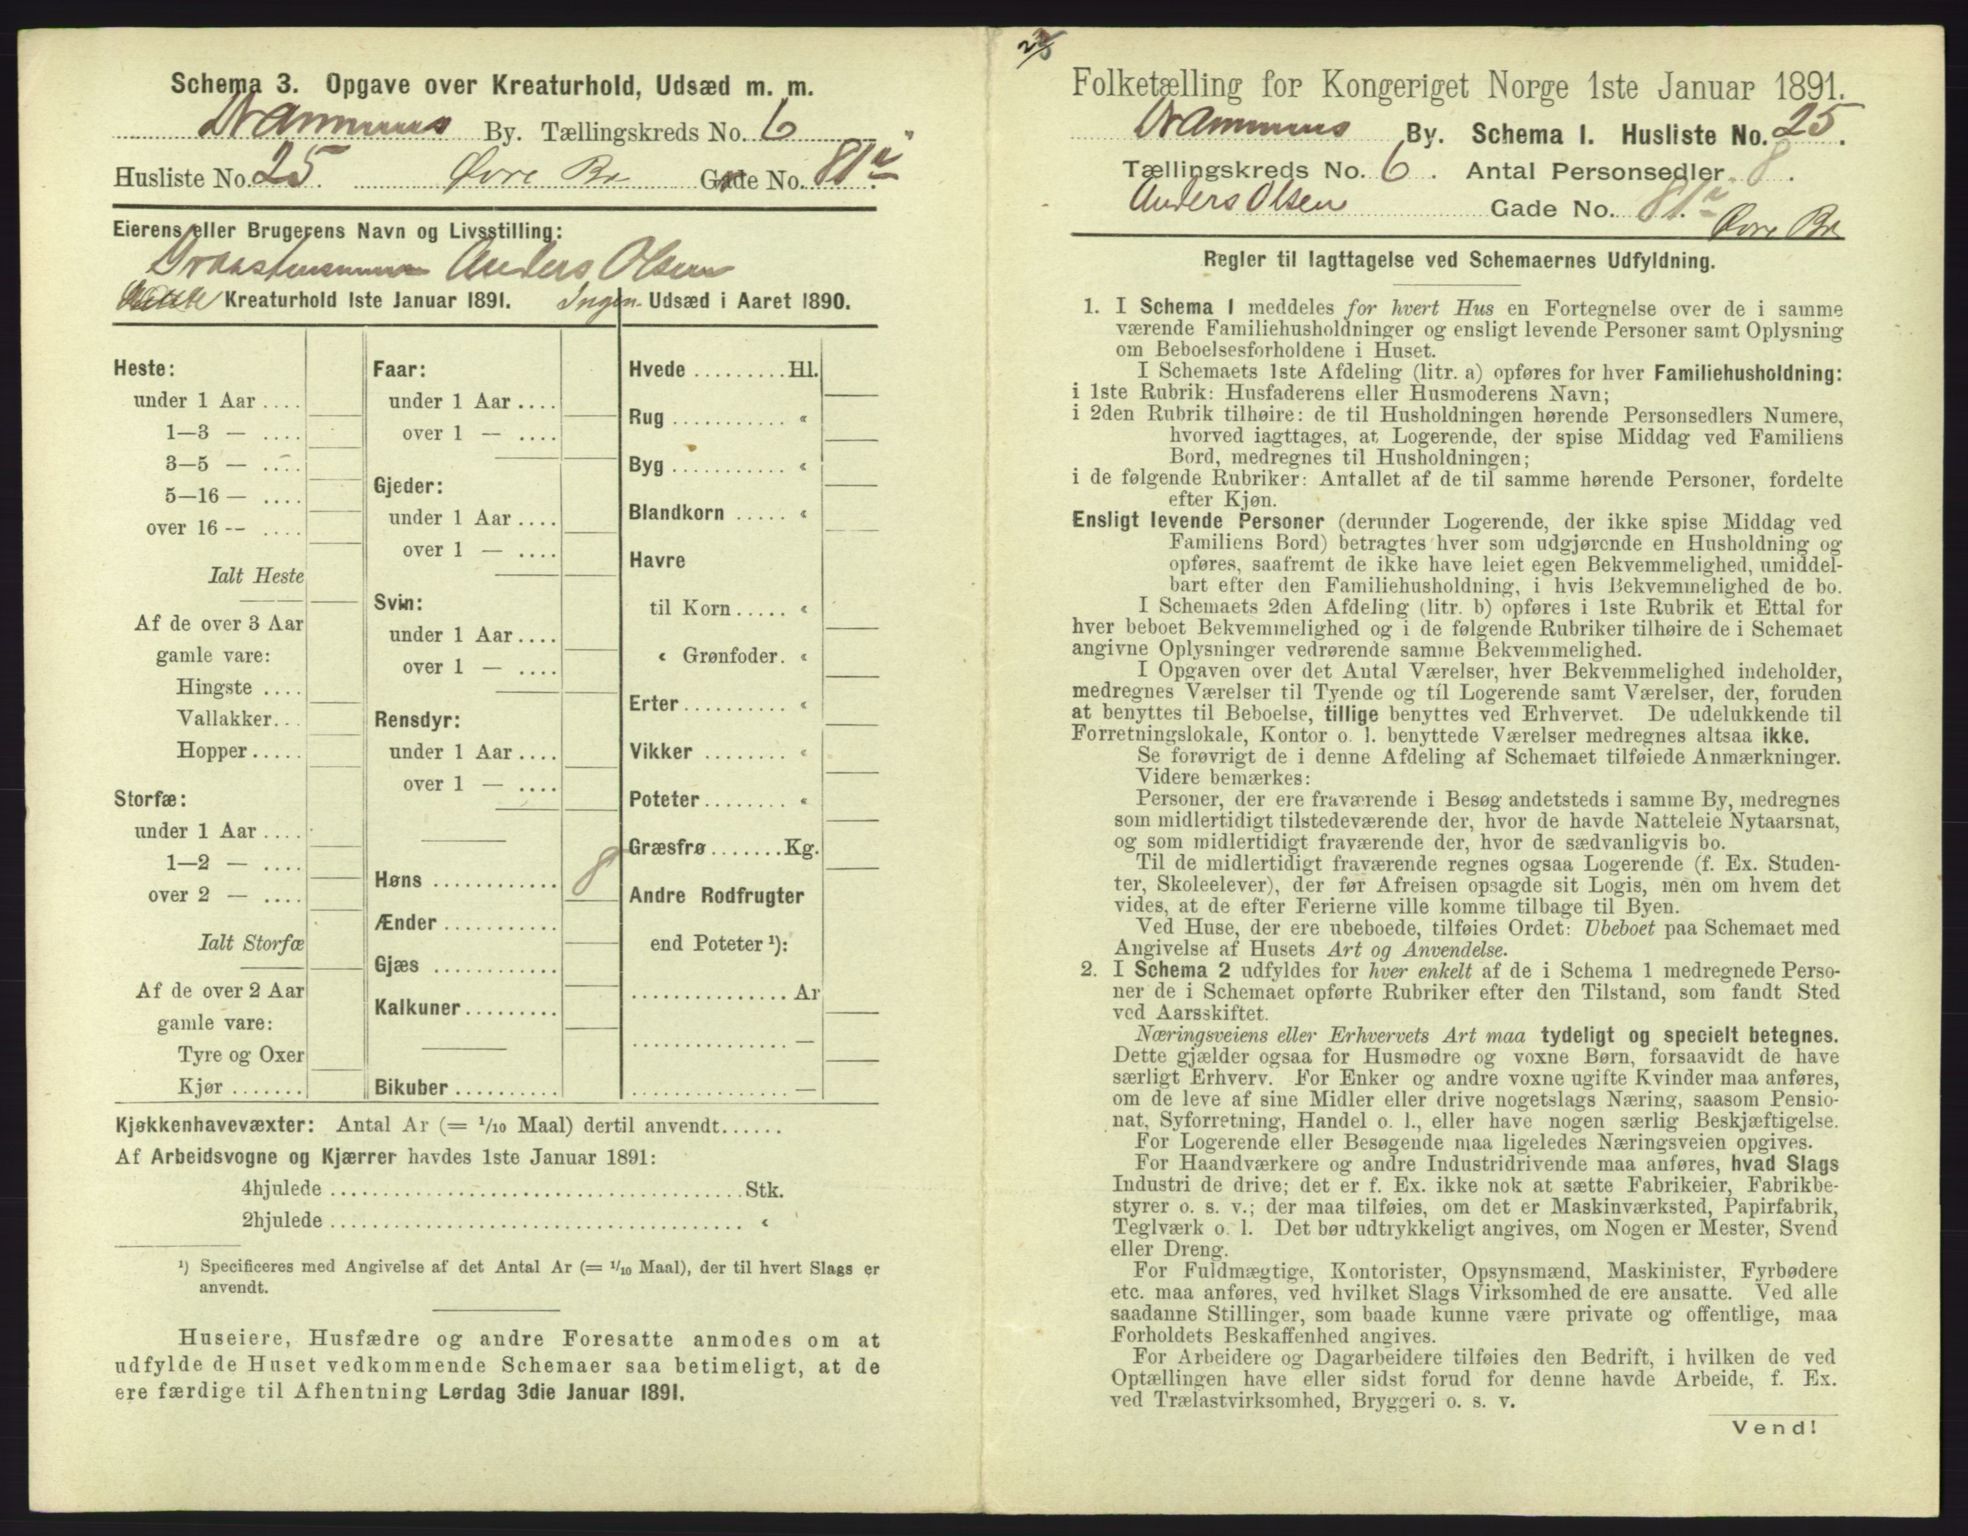 Schema 3. Opgave over Kreaturhold, Udsæd m. m.
Drammens By. Tællingskreds No. 6
Husliste No. 25. Øvre Br Gade No. 81
Eierens eller Brugerens Navn og Livsstilling:
Anders Olsen
Kreaturhold 1ste Januar 1891. Ingen Udsæd i Aaret 1890.
Heste:
under 1 Aar ....
1—3 — ....
3—5 — ....
5—16 — ....
over 16 -- ....
Ialt Heste
Af de over 3 Aar
gamle vare:
Hingste ....
Vallakker...
Hopper.....
Storfæ:
under 1 Aar ....
1—2 — ....
over 2 — ....
Ialt Storfæ
Af de over 2 Aar
gamle vare:
Tyre og Oxer
Kjør .......
Faar:
under 1 Aar ....
over 1 — ....
Gjeder:
under 1 Aar ....
over 1 — ....
Svin:
under 1 Aar ....
over 1 — ....
Rensdyr:
under 1 Aar ....
over 1 — ....
Høns ............ 8
Ænder ...........
Gjæs ............
Kalkuner.........
Bikuber ..........
Hvede .........Hl.
Rug ........... «
Byg ........... «
Blandkorn ..... «
Havre
til Korn ..... «
« Grønfoder. «
Erter.......... «
Vikker ........ «
Poteter........ «
Græsfrø.......Kg.
Andre Rodfrugter
end Poteter ¹):
............... Ar
............... —
............... —
Kjøkkenhavevæxter: Antal Ar (= 1/10 Maal) dertil anvendt......
Af Arbeidsvogne og Kjærrer havdes 1ste Januar 1891:
4hjulede .......................................Stk.
2hjulede ....................................... «
¹) Specificeres med Angivelse af det Antal Ar (= 1/10 Maal), der til hvert Slags er
anvendt.
Huseiere, Husfædre og andre Foresatte anmodes om at
udfylde de Huset vedkommende Schemaer saa betimeligt, at de
ere færdige til Afhentning Lørdag 3die Januar 1891.
Folketælling for Kongeriget Norge 1ste Januar 1891.
Drammens By. Schema I. Husliste No. 25.
Tællingskreds No. 6. Antal Personsedler 8.
Anders Olsen Gade No. 81. Øvre Br
Regler til Iagttagelse ved Schemaernes Udfyldning.
1. I Schema I meddeles for hvert Hus en Fortegnelse over de i samme
værende Familiehusholdninger og ensligt levende Personer samt Oplysning
om Beboelsesforholdene i Huset.
I Schemaets 1ste Afdeling (litr. a) opføres for hver Familiehusholdning:
i 1ste Rubrik: Husfaderens eller Husmoderens Navn;
i 2den Rubrik tilhøire: de til Husholdningen hørende Personsedlers Numere,
hvorved iagttages, at Logerende, der spise Middag ved Familiens
Bord, medregnes til Husholdningen;
i de følgende Rubriker: Antallet af de til samme hørende Personer, fordelte
efter Kjøn.
Ensligt levende Personer (derunder Logerende, der ikke spise Middag ved
Familiens Bord) betragtes hver som udgjørende en Husholdning og
opføres, saafremt de ikke have leiet egen Bekvemmelighed, umiddel-
bart efter den Familiehusholdning, i hvis Bekvemmelighed de bo.
I Schemaets 2den Afdeling (litr. b) opføres i 1ste Rubrik et Ettal for
hver beboet Bekvemmelighed og i de følgende Rubriker tilhøire de i Schemaet
angivne Oplysninger vedrørende samme Bekvemmelighed.
I Opgaven over det Antal Værelser, hver Bekvemmelighed indeholder,
medregnes Værelser til Tyende og til Logerende samt Værelser, der, foruden
at benyttes til Beboelse, tillige benyttes ved Erhvervet. De udelukkende til
Forretningslokale, Kontor o. l. benyttede Værelser medregnes altsaa ikke.
Se forøvrigt de i denne Afdeling af Schemaet tilføiede Anmærkninger.
Videre bemærkes:
Personer, der ere fraværende i Besøg andetsteds i samme By, medregnes
som midlertidigt tilstedeværende der, hvor de havde Natteleie Nytaarsnat,
og som midlertidigt fraværende der, hvor de sædvanligvis bo.
Til de midlertidigt fraværende regnes ogsaa Logerende (f. Ex. Studen-
ter, Skoleelever), der før Afreisen opsagde sit Logis, men om hvem det
vides, at de efter Ferierne ville komme tilbage til Byen.
Ved Huse, der ere ubeboede, tilføies Ordet: Ubeboet paa Schemaet med
Angivelse af Husets Art og Anvendelse.
2. I Schema 2 udfyldes for hver enkelt af de i Schema 1 medregnede Perso-
ner de i Schemaet opførte Rubriker efter den Tilstand, som fandt Sted
ved Aarsskiftet.
Næringsveiens eller Erhvervets Art maa tydeligt og specielt betegnes.
Dette gjælder ogsaa for Husmødre og voxne Børn, forsaavidt de have
særligt Erhverv. For Enker og andre voxne ugifte Kvinder maa anføres,
om de leve af sine Midler eller drive nogetslags Næring, saasom Pensio-
nat, Syforretning, Handel o. l., eller have nogen særlig Beskjæftigelse.
For Logerende eller Besøgende maa ligeledes Næringsveien opgives.
For Haandværkere og andre Industridrivende maa anføres, hvad Slags
Industri de drive; det er f. Ex. ikke nok at sætte Fabrikeier, Fabrikbe-
styrer o. s. v.; der maa tilføies, om det er Maskinværksted, Papirfabrik,
Teglværk o. l. Det bør udtrykkeligt angives, om Nogen er Mester, Svend
eller Dreng.
For Fuldmægtige, Kontorister, Opsynsmænd, Maskinister, Fyrbødere
etc. maa anføres, ved hvilket Slags Virksomhed de ere ansatte. Ved alle
saadanne Stillinger, som baade kunne være private og offentlige, maa
Forholdets Beskaffenhed angives.
For Arbeidere og Dagarbeidere tilføies den Bedrift, i hvilken de ved
Optællingen have eller sidst forud for denne havde Arbeide, f. Ex.
ved Trælastvirksomhed, Bryggeri o. s. v.
Vend!